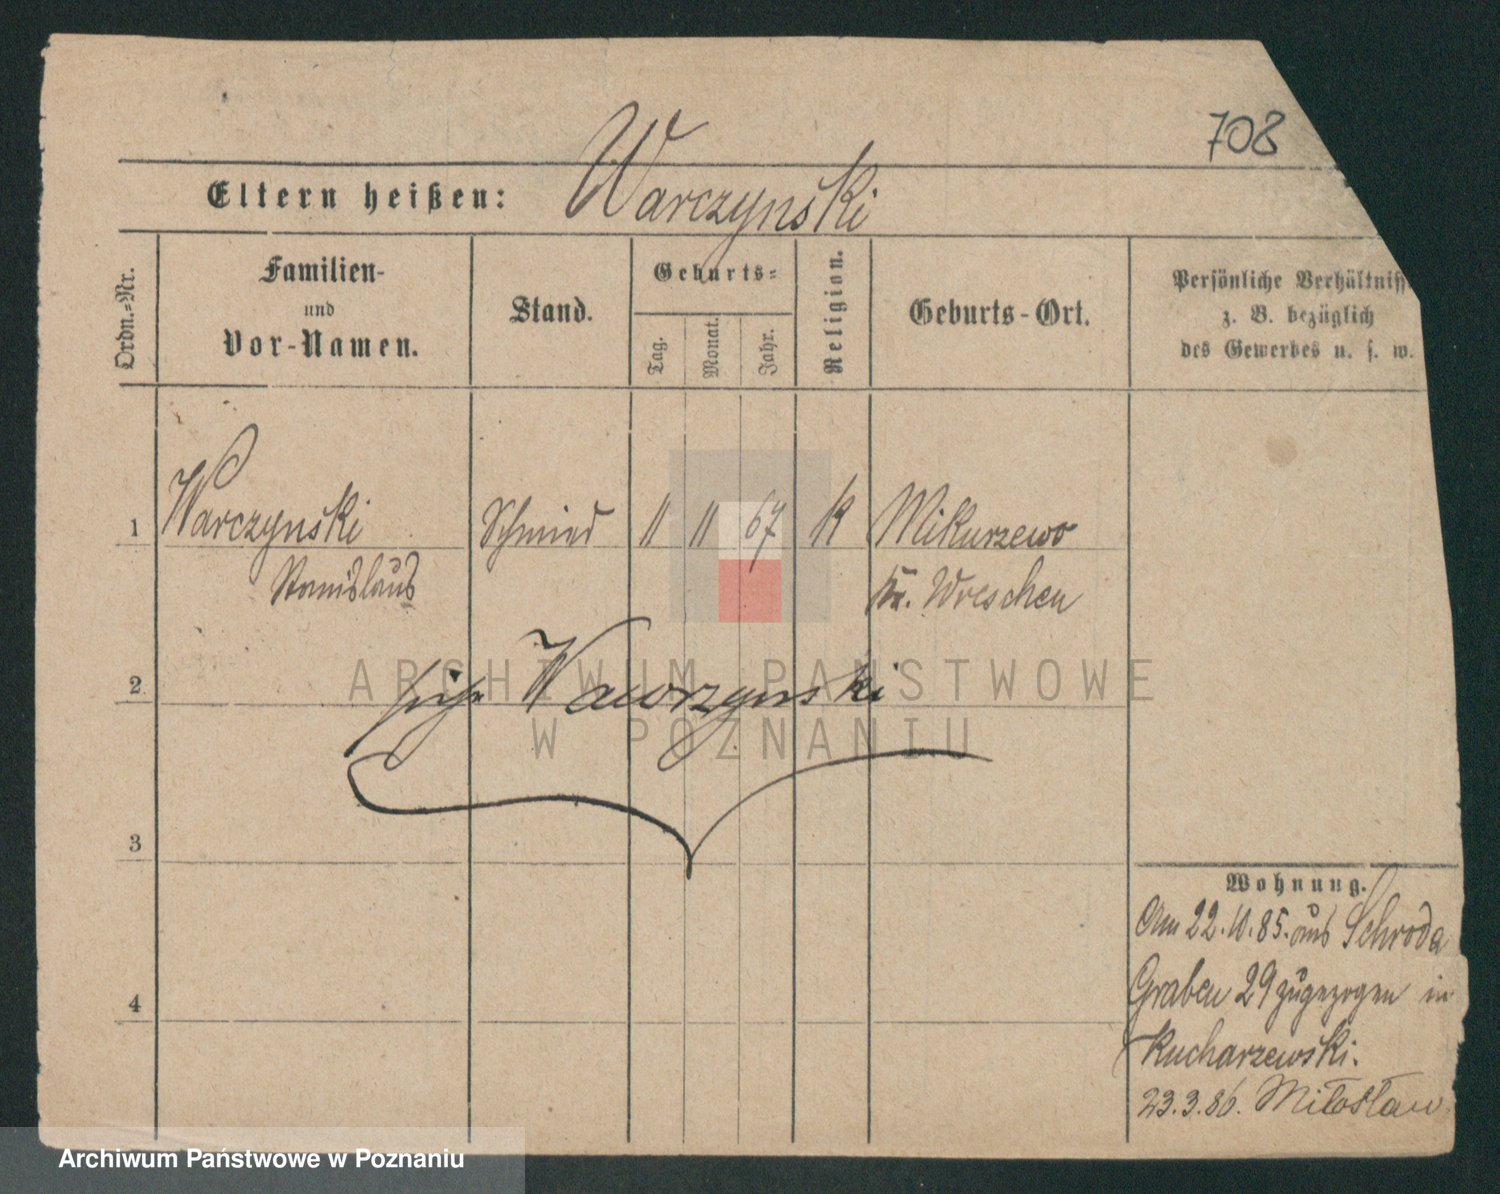 708
Warczynski
Eltern heißen:
Ordn.=Nr.
Familien-
und
Vor-Namen.
Stand.
Geburts=
Tag.
Monat.
Jahr.
Religion.
Geburts-Ort.
Persönliche Verhältniss
z. B. bezüglich
des Gewerbes u. s. w.
1 Warczynski Schmied 11 11 67 K Mikurzewo
Stanislaus Kr. Wreschen
2 siehe Wawrzynski
ARCHIWUM PAŃSTWOWE
W POZNANIU
3
4
Wohnung.
Am 22.10.85. aus Schroda
Graben 29 zugezogen in
Kucharzewski.
23.3.86. Miłosław
Archiwum Państwowe w Poznaniu